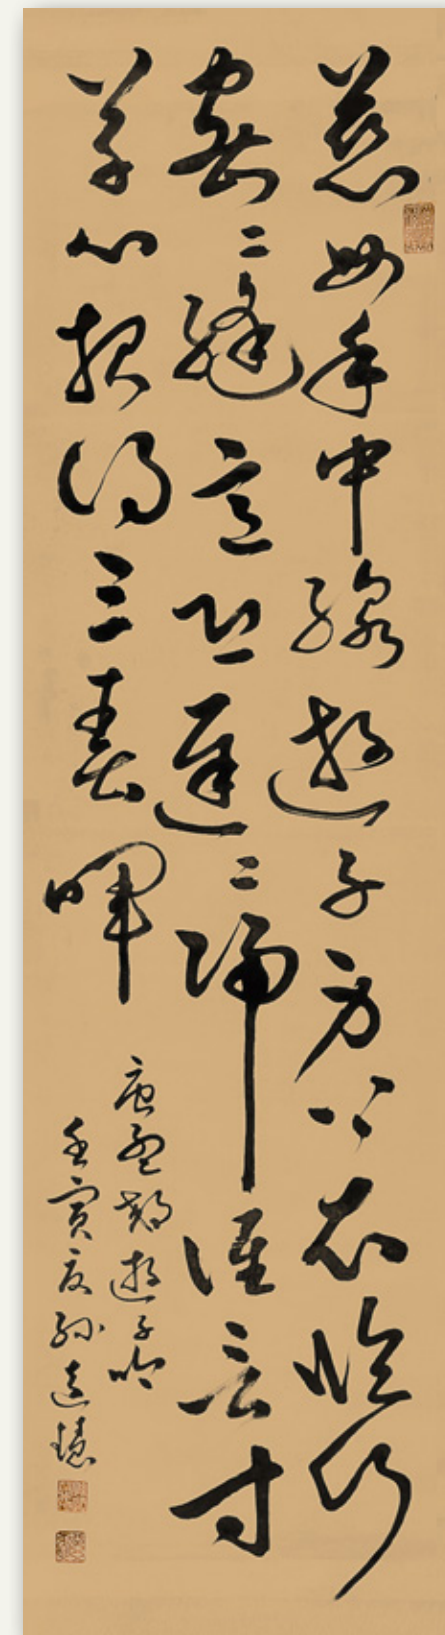 慈母手中線遊子身上衣臨行
密〻縫意恐遲〻歸誰言寸
草心報得三春暉
唐孟郊遊子吟
壬寅夏孫